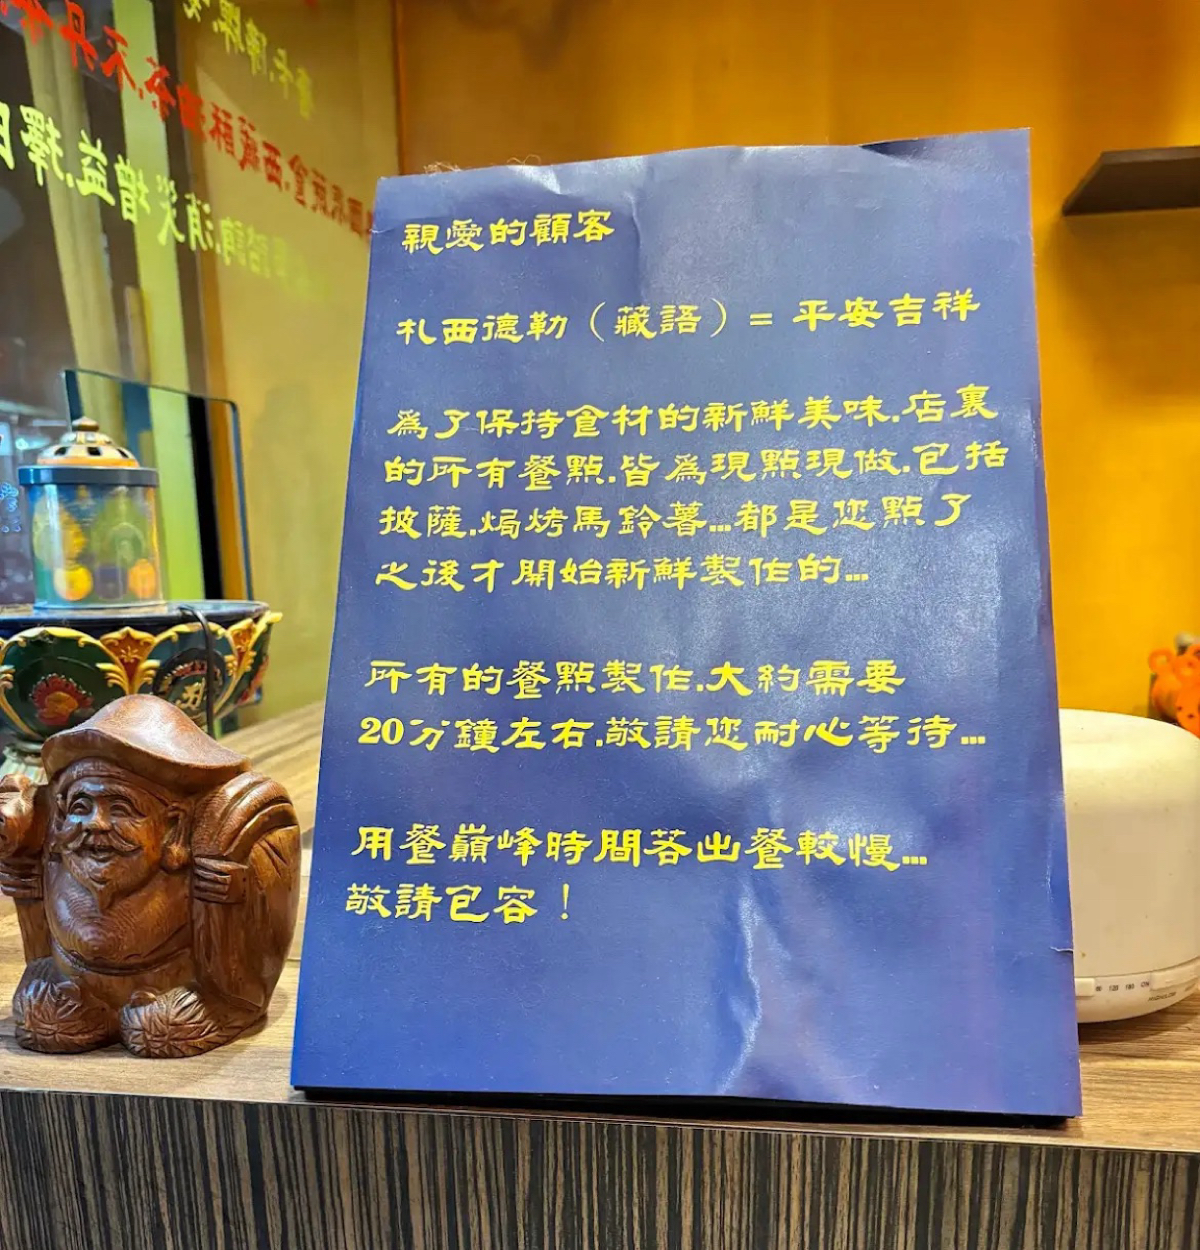 親愛的顧客
札西德勒（藏語）= 平安吉祥
為了保持食材的新鮮美味.店裏
的所有餐點.皆為現點現做.包括
披薩.焗烤馬鈴薯...都是您點了
之後才開始新鮮製作的...
所有的餐點製作.大約需要
20分鐘左右.敬請您耐心等待...
用餐巔峰時間若出餐較慢...
敬請包容！